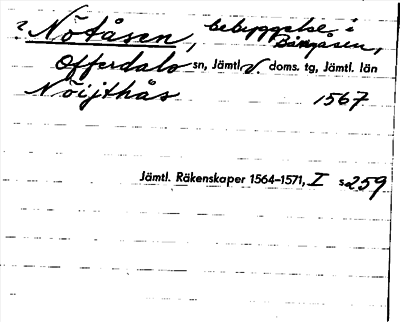 ? Nötåsen, bebyggelse i
Bångåsen,
Offerdals sn, Jämtl. V. doms. tg, Jämtl. län
Nöijthås 1567
Jämtl. Räkenskaper 1564–1571, I s. 259